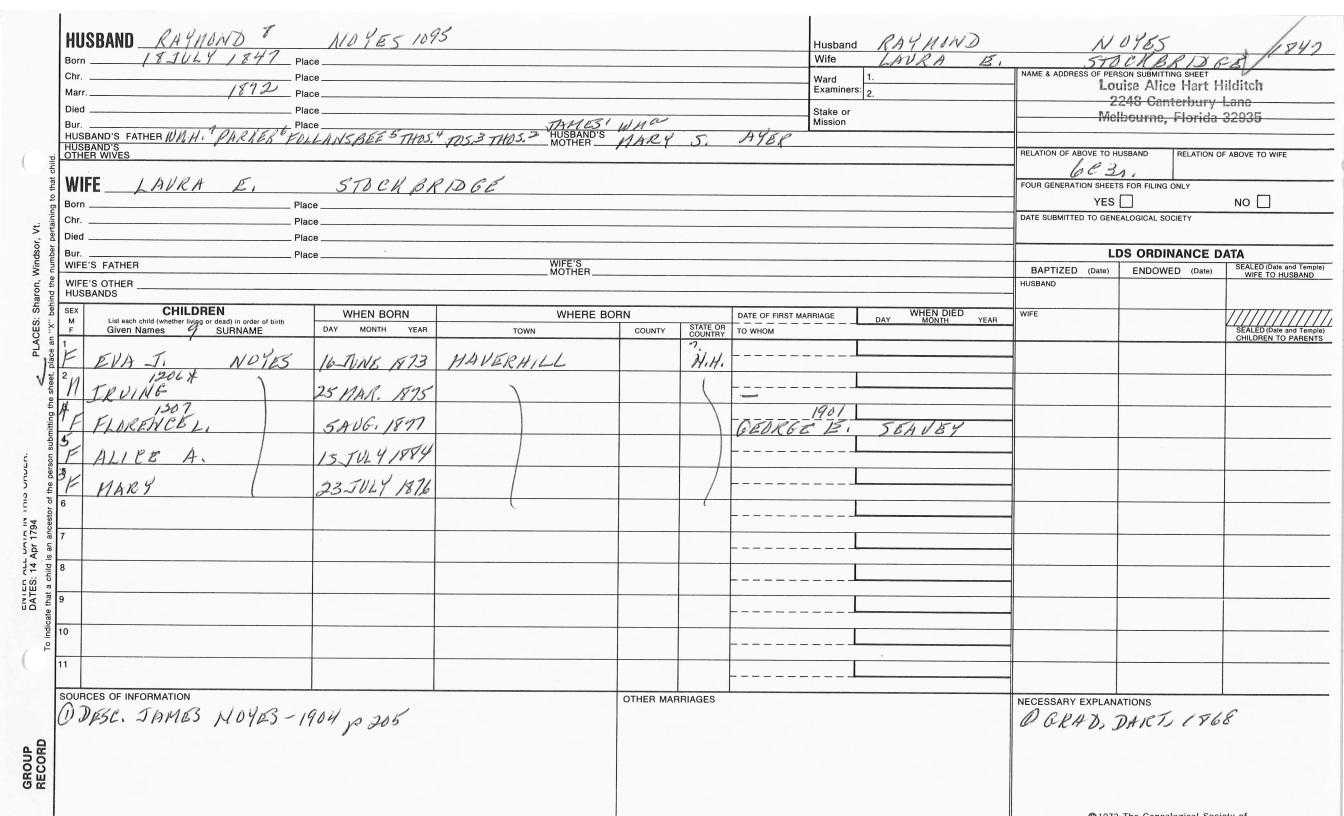 HUSBAND RAYMOND 8 NOYES 1095
Born 18 JULY 1847 Place
Chr. Place
Marr. 1872 Place
Died Place
Bur. Place
JAMES' WM a
HUSBAND'S FATHER WM. H. 7 PARKER 6 FOLLANSBEE 5 THOS. 4 JOS. 3 THOS. 2 HUSBAND'S MOTHER MARY S. AYER
HUSBAND'S OTHER WIVES
Husband RAYMOND NOYES 1847
Wife LAURA E. STOCKBRIDGE
Ward Examiners: 1.
2.
Stake or Mission
NAME & ADDRESS OF PERSON SUBMITTING SHEET
Louise Alice Hart Hilditch
2248 Canterbury Lane
Melbourne, Florida 32935
RELATION OF ABOVE TO HUSBAND RELATION OF ABOVE TO WIFE
6C 3r.
FOUR GENERATION SHEETS FOR FILING ONLY
YES NO
DATE SUBMITTED TO GENEALOGICAL SOCIETY
WIFE LAURA E. STOCKBRIDGE
Born Place
Chr. Place
Died Place
Bur. Place
WIFE'S FATHER WIFE'S MOTHER
WIFE'S OTHER HUSBANDS
LDS ORDINANCE DATA
BAPTIZED (Date) ENDOWED (Date) SEALED (Date and Temple) WIFE TO HUSBAND
HUSBAND
WIFE
SEALED (Date and Temple) CHILDREN TO PARENTS
SEX M F
CHILDREN
List each child (whether living or dead) in order of birth
Given Names 9 SURNAME
WHEN BORN
DAY MONTH YEAR
WHERE BORN
TOWN COUNTY STATE OR COUNTRY
DATE OF FIRST MARRIAGE
TO WHOM
WHEN DIED
DAY MONTH YEAR
1 F EVA J. NOYES 16 JUNE 1873 HAVERHILL ? N.H.
1206*
2 M IRVING 25 MAR. 1875 —
1207 1901
4 F FLORENCE L. 5 AUG. 1877 GEORGE E. SEAVEY
5 F ALICE A. 15 JULY 1884
3 F MARY 23 JULY 1876
6
7
8
9
10
11
SOURCES OF INFORMATION
① DESC. JAMES NOYES - 1904 p 205
OTHER MARRIAGES
NECESSARY EXPLANATIONS
① GRAD. DART. 1868
PLACES: Sharon, Windsor, Vt.
ENTER ALL DATA IN THIS ORDER:
DATES: 14 Apr 1794
To indicate that a child is an ancestor of the person submitting the sheet, place an "X" behind the number pertaining to that child.
GROUP RECORD
©1972 The Genealogical Society of